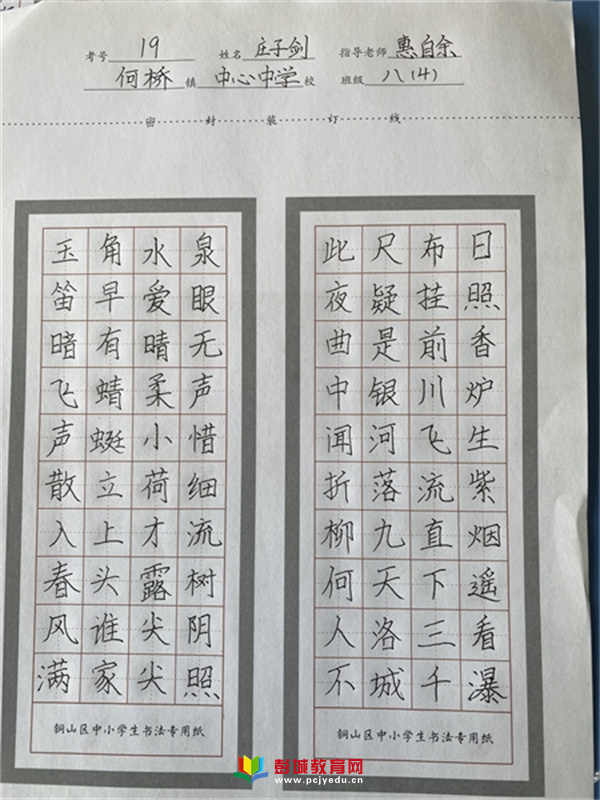 考号 19 姓名 庄子剑 指导老师 惠自余
何桥 镇 中心中学 校 班级 八(4)
密 封 装 订 线
日照香炉生紫烟遥看瀑
布挂前川飞流直下三千
尺疑是银河落九天洛城
此夜曲中闻折柳何人不
铜山区中小学生书法专用纸
泉眼无声惜细流树阴照
水爱晴柔小荷才露尖尖
角早有蜻蜓立上头谁家
玉笛暗飞声散入春风满
铜山区中小学生书法专用纸
彭城教育网
www.pcjyedu.cn